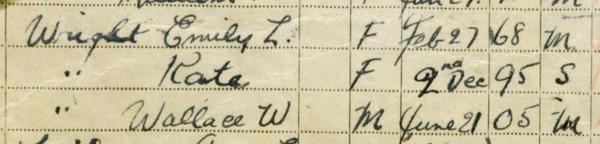 Wright Emily L. F Feb 27 68 M
" Kate F 2nd Dec 95 S
" Wallace W M June 21 05 M